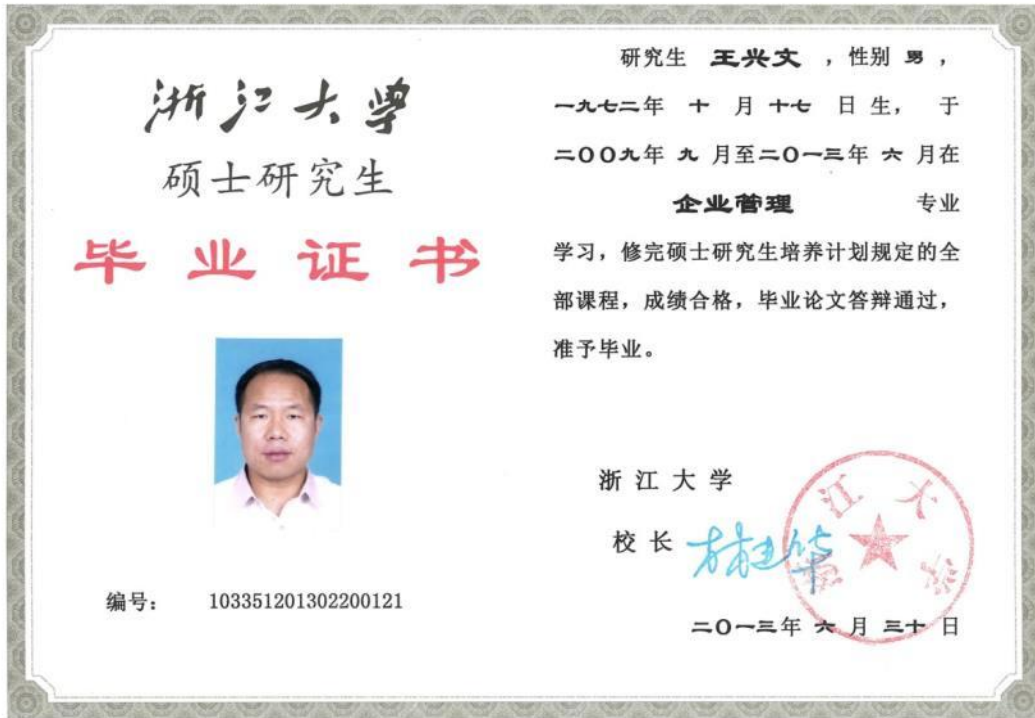 浙江大学
硕士研究生
毕业证书
编号： 103351201302200121
研究生 王兴文 ，性别 男 ，
一九七二年 十 月 十七 日 生， 于
二00九年 九 月至二0一三年 六 月在
企业管理 专业
学习，修完硕士研究生培养计划规定的全
部课程，成绩合格，毕业论文答辩通过，
准予毕业。
浙 江 大 学
校 长
浙江大学
二0一三年 六 月 三十 日